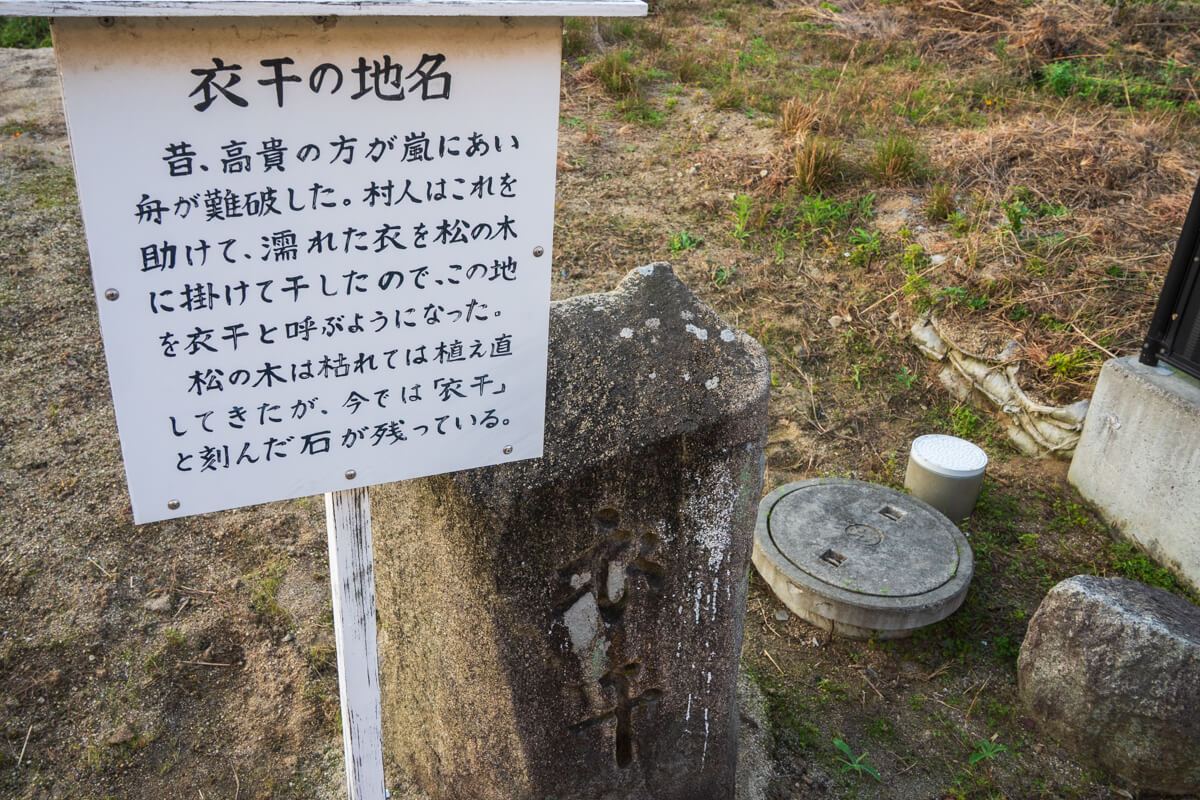 衣干の地名
昔、高貴の方が嵐にあい
舟が難破した。村人はこれを
助けて、濡れた衣を松の木
に掛けて干したので、この地
を衣干と呼ぶようになった。
松の木は枯れては植え直
してきたが、今では「衣干」
と刻んだ石が残っている。
衣干